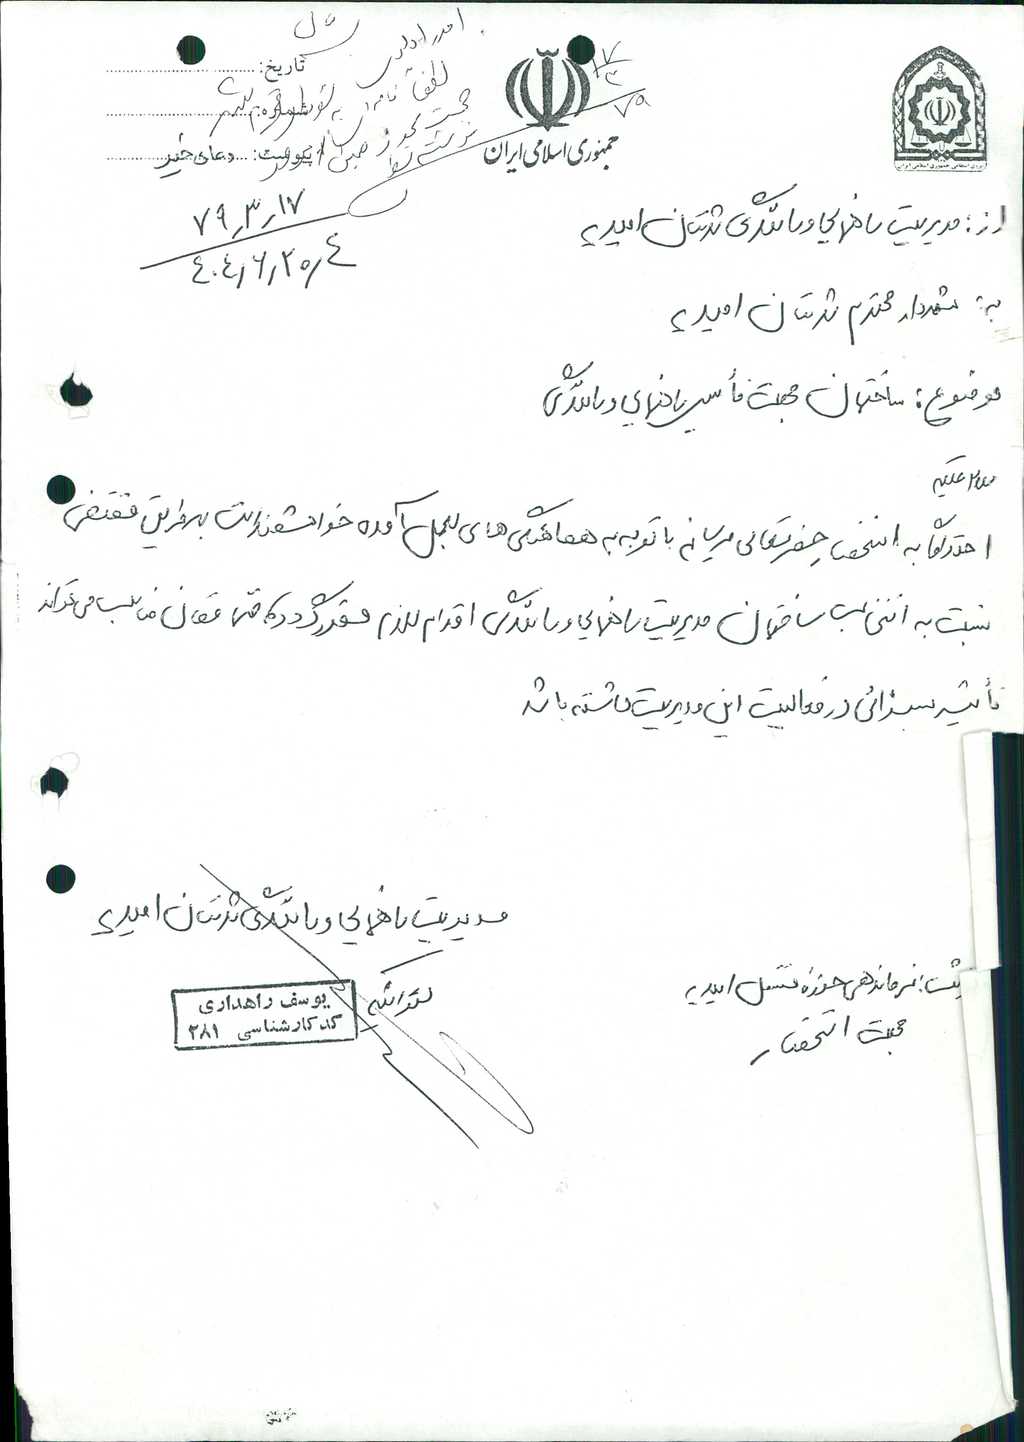 جمهوری اسلامی ایران
تاریخ:
شماره:
پیوست:
امور اداری
لطفاً
۱۷/۳/۷۹
۷۹٫۳٫۱۷
۴۰۴٫۶٫۲۰٫۴
از: مدیریت راهنمایی و رانندگی شهرستان امیدیه
به: شهردار محترم شهرستان امیدیه
موضوع: ساختمان جهت تأسیس راهنمایی و رانندگی
سلام علیکم
احتراماً به استحضار حضرتعالی میرساند با توجه به هماهنگی های بعمل آمده خواهشمند است به طریق مقتضی
نسبت به انتخاب ساختمان مدیریت راهنمایی و رانندگی اقدام لازم مقرر گردد که مکان مناسب می تواند
تأثیر بسزائی در فعالیت این مدیریت داشته باشد
مدیریت راهنمایی و رانندگی شهرستان امیدیه
یوسف راهداری
کد کارشناسی ۲۸۱
فرماندهی حوزه امیدیه
جهت استحضار